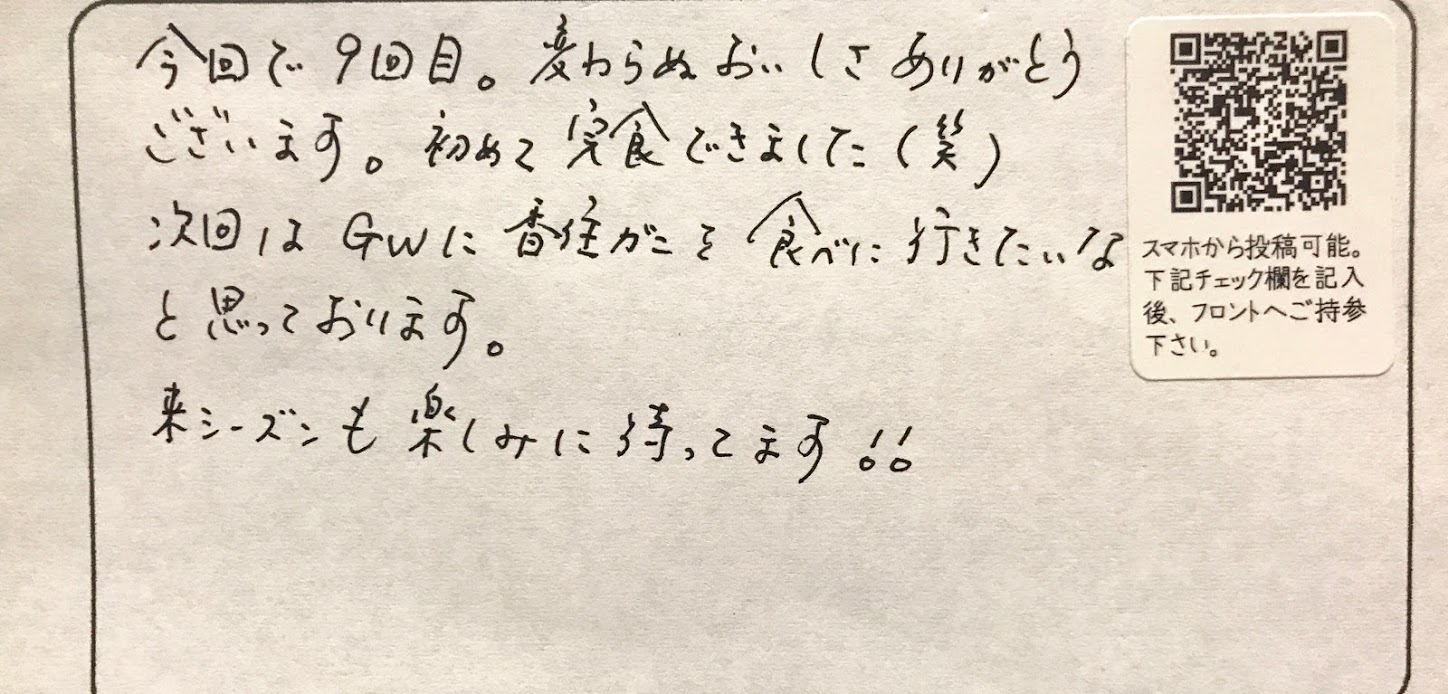 今回で9回目。変わらぬおいしさありがとう
ございます。初めて完食できました(笑)
次回はGWに香住がにを食べに行きたいな
と思っております。
来シーズンも楽しみに待ってます!!
スマホから投稿可能。
下記チェック欄を記入
後、フロントへご持参
下さい。